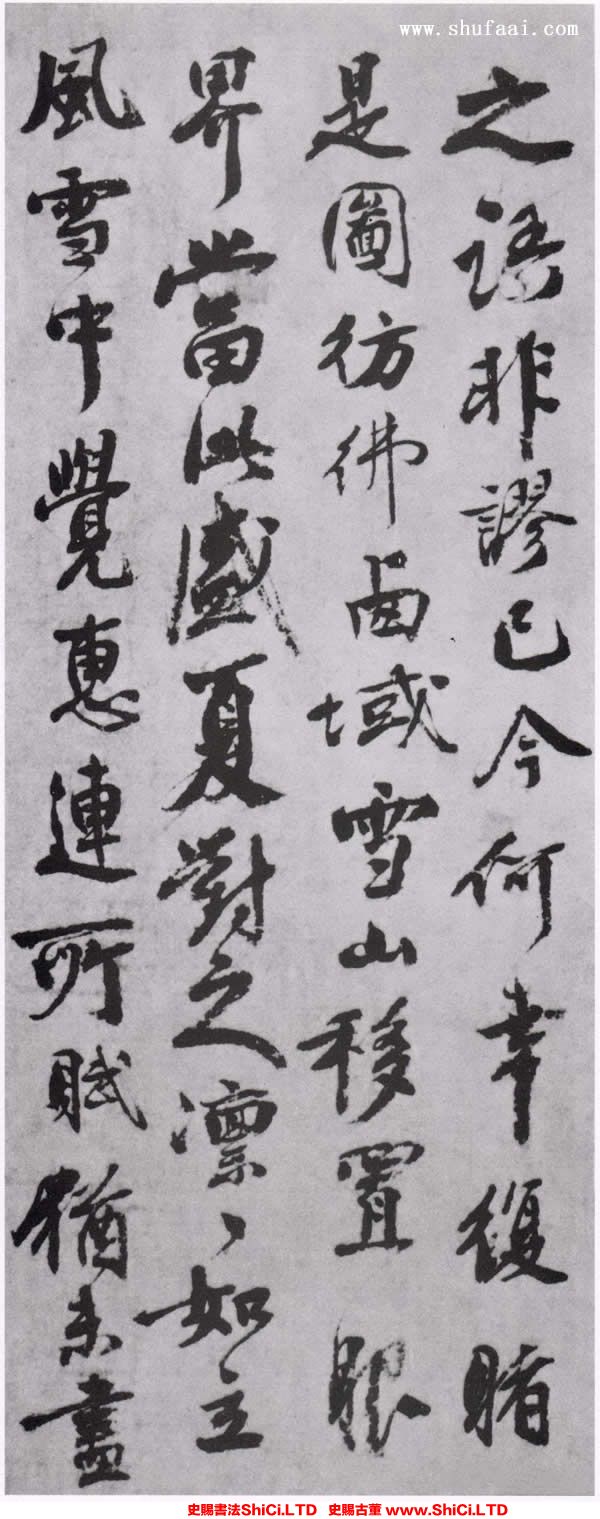 www.shufaai.com
之語非謬已今何幸復睹
是圖彷彿西域雪山移置眼
界當此盛夏對之凛〻如立
風雪中覺惠連所賦猶未盡
史賜書法ShiCi.LTD 史賜古董 www.ShiCi.LTD